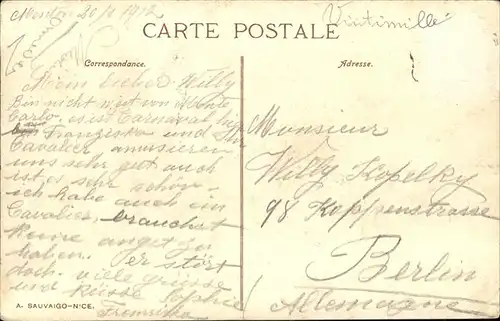 Menton 20/2 1912
CARTE POSTALE
Vintimille
Correspondance.
Adresse.
Mein lieber Willy
Bin nicht weit von Monte
Carlo, es ist Carnaval hier
Franziska und Ihr
Cavalier amusieren
uns sehr gut auch
ist es sehr schön.
ich habe auch ein
Cavalier, brauchst
keine angst zu
haben. er stört
doch. viele grüsse
und küsse Sophie
Monsieur
Willy Kopelky
98 Koppenstrasse
Berlin
Allemagne
A. SAUVAIGO-NICE.